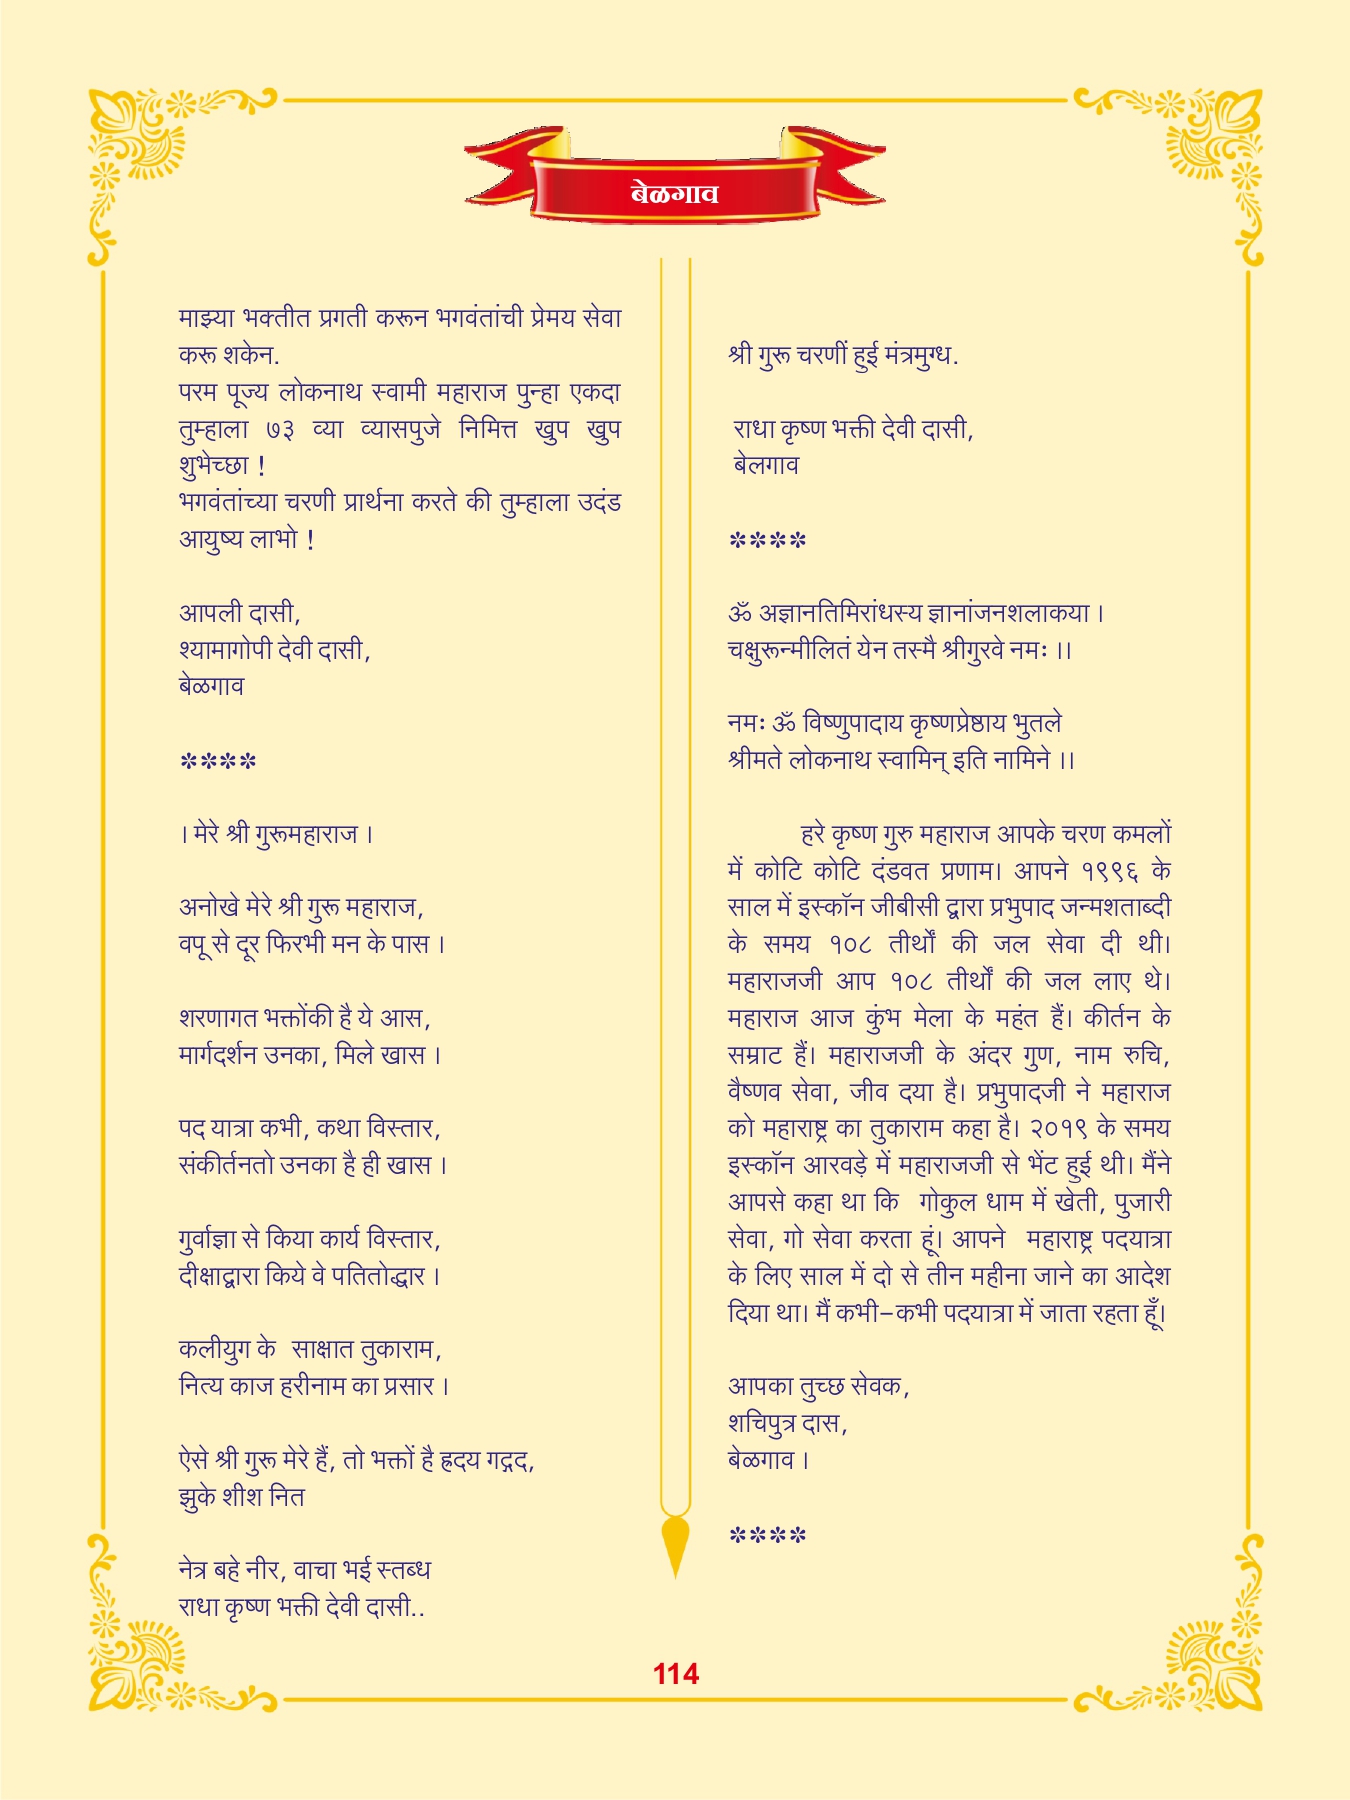 बेळगाव
माझ्या भक्तीत प्रगती करून भगवंतांची प्रेमय सेवा
करू शकेन.
परम पूज्य लोकनाथ स्वामी महाराज पुन्हा एकदा
तुम्हाला ७३ व्या व्यासपुजे निमित्त खुप खुप
शुभेच्छा !
भगवंतांच्या चरणी प्रार्थना करते की तुम्हाला उदंड
आयुष्य लाभो !
आपली दासी,
श्यामागोपी देवी दासी,
बेळगाव
****
। मेरे श्री गुरूमहाराज ।
अनोखे मेरे श्री गुरू महाराज,
वपू से दूर फिरभी मन के पास ।
शरणागत भक्तोंकी है ये आस,
मार्गदर्शन उनका, मिले खास ।
पद यात्रा कभी, कथा विस्तार,
संकीर्तनतो उनका है ही खास ।
गुर्वाज्ञा से किया कार्य विस्तार,
दीक्षाद्वारा किये वे पतितोद्धार ।
कलीयुग के साक्षात तुकाराम,
नित्य काज हरीनाम का प्रसार ।
ऐसे श्री गुरू मेरे हैं, तो भक्तों है ह्रदय गद्गद,
झुके शीश नित
नेत्र बहे नीर, वाचा भई स्तब्ध
राधा कृष्ण भक्ती देवी दासी..
श्री गुरू चरणीं हुई मंत्रमुग्ध.
राधा कृष्ण भक्ती देवी दासी,
बेलगाव
****
ॐ अज्ञानतिमिरांधस्य ज्ञानांजनशलाकया ।
चक्षुरून्मीलितं येन तस्मै श्रीगुरवे नमः ।।
नमः ॐ विष्णुपादाय कृष्णप्रेष्ठाय भुतले
श्रीमते लोकनाथ स्वामिन् इति नामिने ।।
हरे कृष्ण गुरु महाराज आपके चरण कमलों
में कोटि कोटि दंडवत प्रणाम। आपने १९९६ के
साल में इस्कॉन जीबीसी द्वारा प्रभुपाद जन्मशताब्दी
के समय १०८ तीर्थों की जल सेवा दी थी।
महाराजजी आप १०८ तीर्थों की जल लाए थे।
महाराज आज कुंभ मेला के महंत हैं। कीर्तन के
सम्राट हैं। महाराजजी के अंदर गुण, नाम रुचि,
वैष्णव सेवा, जीव दया है। प्रभुपादजी ने महाराज
को महाराष्ट्र का तुकाराम कहा है। २०१९ के समय
इस्कॉन आरवड़े में महाराजजी से भेंट हुई थी। मैंने
आपसे कहा था कि गोकुल धाम में खेती, पुजारी
सेवा, गो सेवा करता हूं। आपने महाराष्ट्र पदयात्रा
के लिए साल में दो से तीन महीना जाने का आदेश
दिया था। मैं कभी–कभी पदयात्रा में जाता रहता हूँ।
आपका तुच्छ सेवक,
शचिपुत्र दास,
बेळगाव ।
****
114